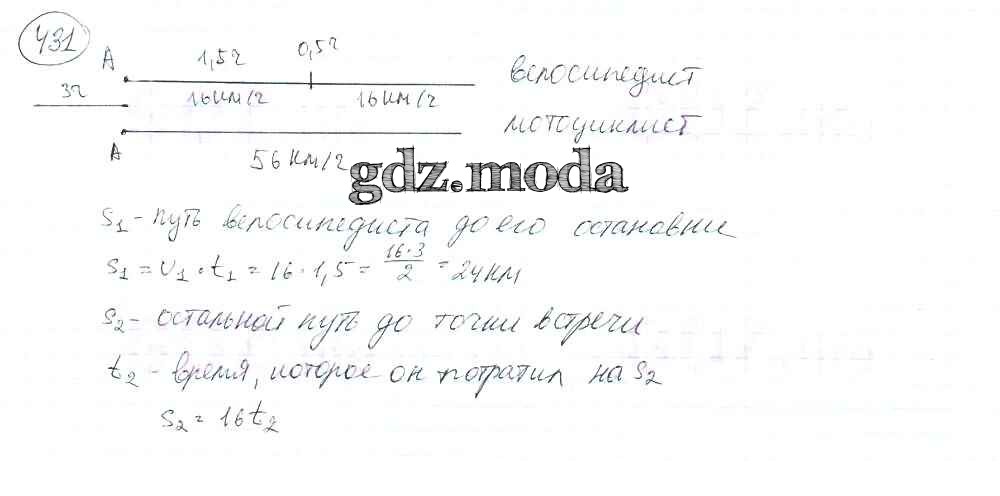 431
А 1,5ч 0,5ч велосипедист
3ч 16км/ч 16км/ч
мотоциклист
А 56км/ч
gdz.moda
S1 - путь велосипедиста до его остановки
S1 = υ1 · t1 = 16 · 1,5 = 16·3/2 = 24км
S2 - остальной путь до точки встречи
t2 - время, которое он потратил на S2
S2 = 16t2